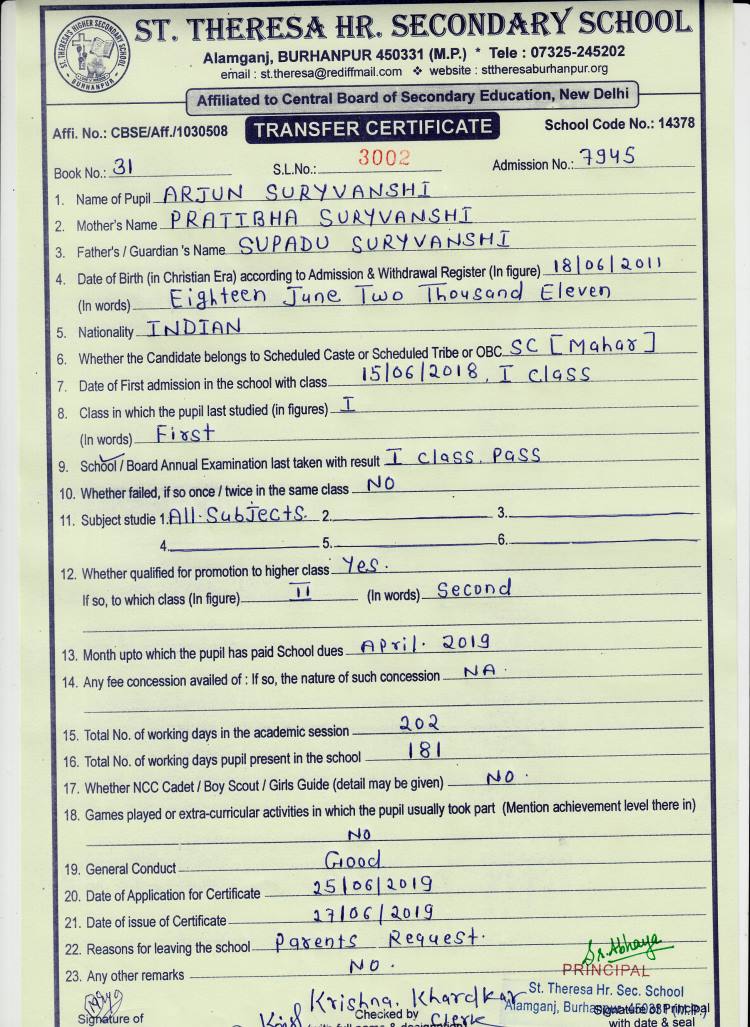 ST. THERESA HR. SECONDARY SCHOOL
ST. THERESA'S HIGHER SECONDARY SCHOOL
BURHANPUR
Alamganj, BURHANPUR 450331 (M.P.) * Tele : 07325-245202
email : st.theresa@rediffmail.com ❖ website : sttheresaburhanpur.org
Affiliated to Central Board of Secondary Education, New Delhi
Affi. No.: CBSE/Aff./1030508 TRANSFER CERTIFICATE School Code No.: 14378
Book No.: 31 S.L.No.: 3002 Admission No.: 7945
1. Name of Pupil ARJUN SURYVANSHI
2. Mother's Name PRATIBHA SURYVANSHI
3. Father's / Guardian 's Name SUPADU SURYVANSHI
4. Date of Birth (in Christian Era) according to Admission & Withdrawal Register (In figure) 18/06/2011
(In words) Eighteen June Two Thousand Eleven
5. Nationality INDIAN
6. Whether the Candidate belongs to Scheduled Caste or Scheduled Tribe or OBC SC [Mahar]
7. Date of First admission in the school with class 15/06/2018, I class
8. Class in which the pupil last studied (in figures) I
(In words) First
9. School / Board Annual Examination last taken with result I class. Pass
10. Whether failed, if so once / twice in the same class NO
11. Subject studie 1. All. Subjects. 2. 3.
4. 5. 6.
12. Whether qualified for promotion to higher class Yes.
If so, to which class (In figure) II (In words) Second
13. Month upto which the pupil has paid School dues April. 2019
14. Any fee concession availed of : If so, the nature of such concession NA.
15. Total No. of working days in the academic session 202
16. Total No. of working days pupil present in the school 181
17. Whether NCC Cadet / Boy Scout / Girls Guide (detail may be given) NO.
18. Games played or extra-curricular activities in which the pupil usually took part (Mention achievement level there in)
NO
19. General Conduct Good
20. Date of Application for Certificate 25/06/2019
21. Date of issue of Certificate 27/06/2019
22. Reasons for leaving the school Parents Request.
23. Any other remarks NO.
Sr. Abhaya
PRINCIPAL
St. Theresa Hr. Sec. School
Alamganj, Burhanpur-450331 (M.P.)
Krishna. Khardkar
Signature of Checked by Signature of Principal
(with full name & designation) Clerk with date & seal